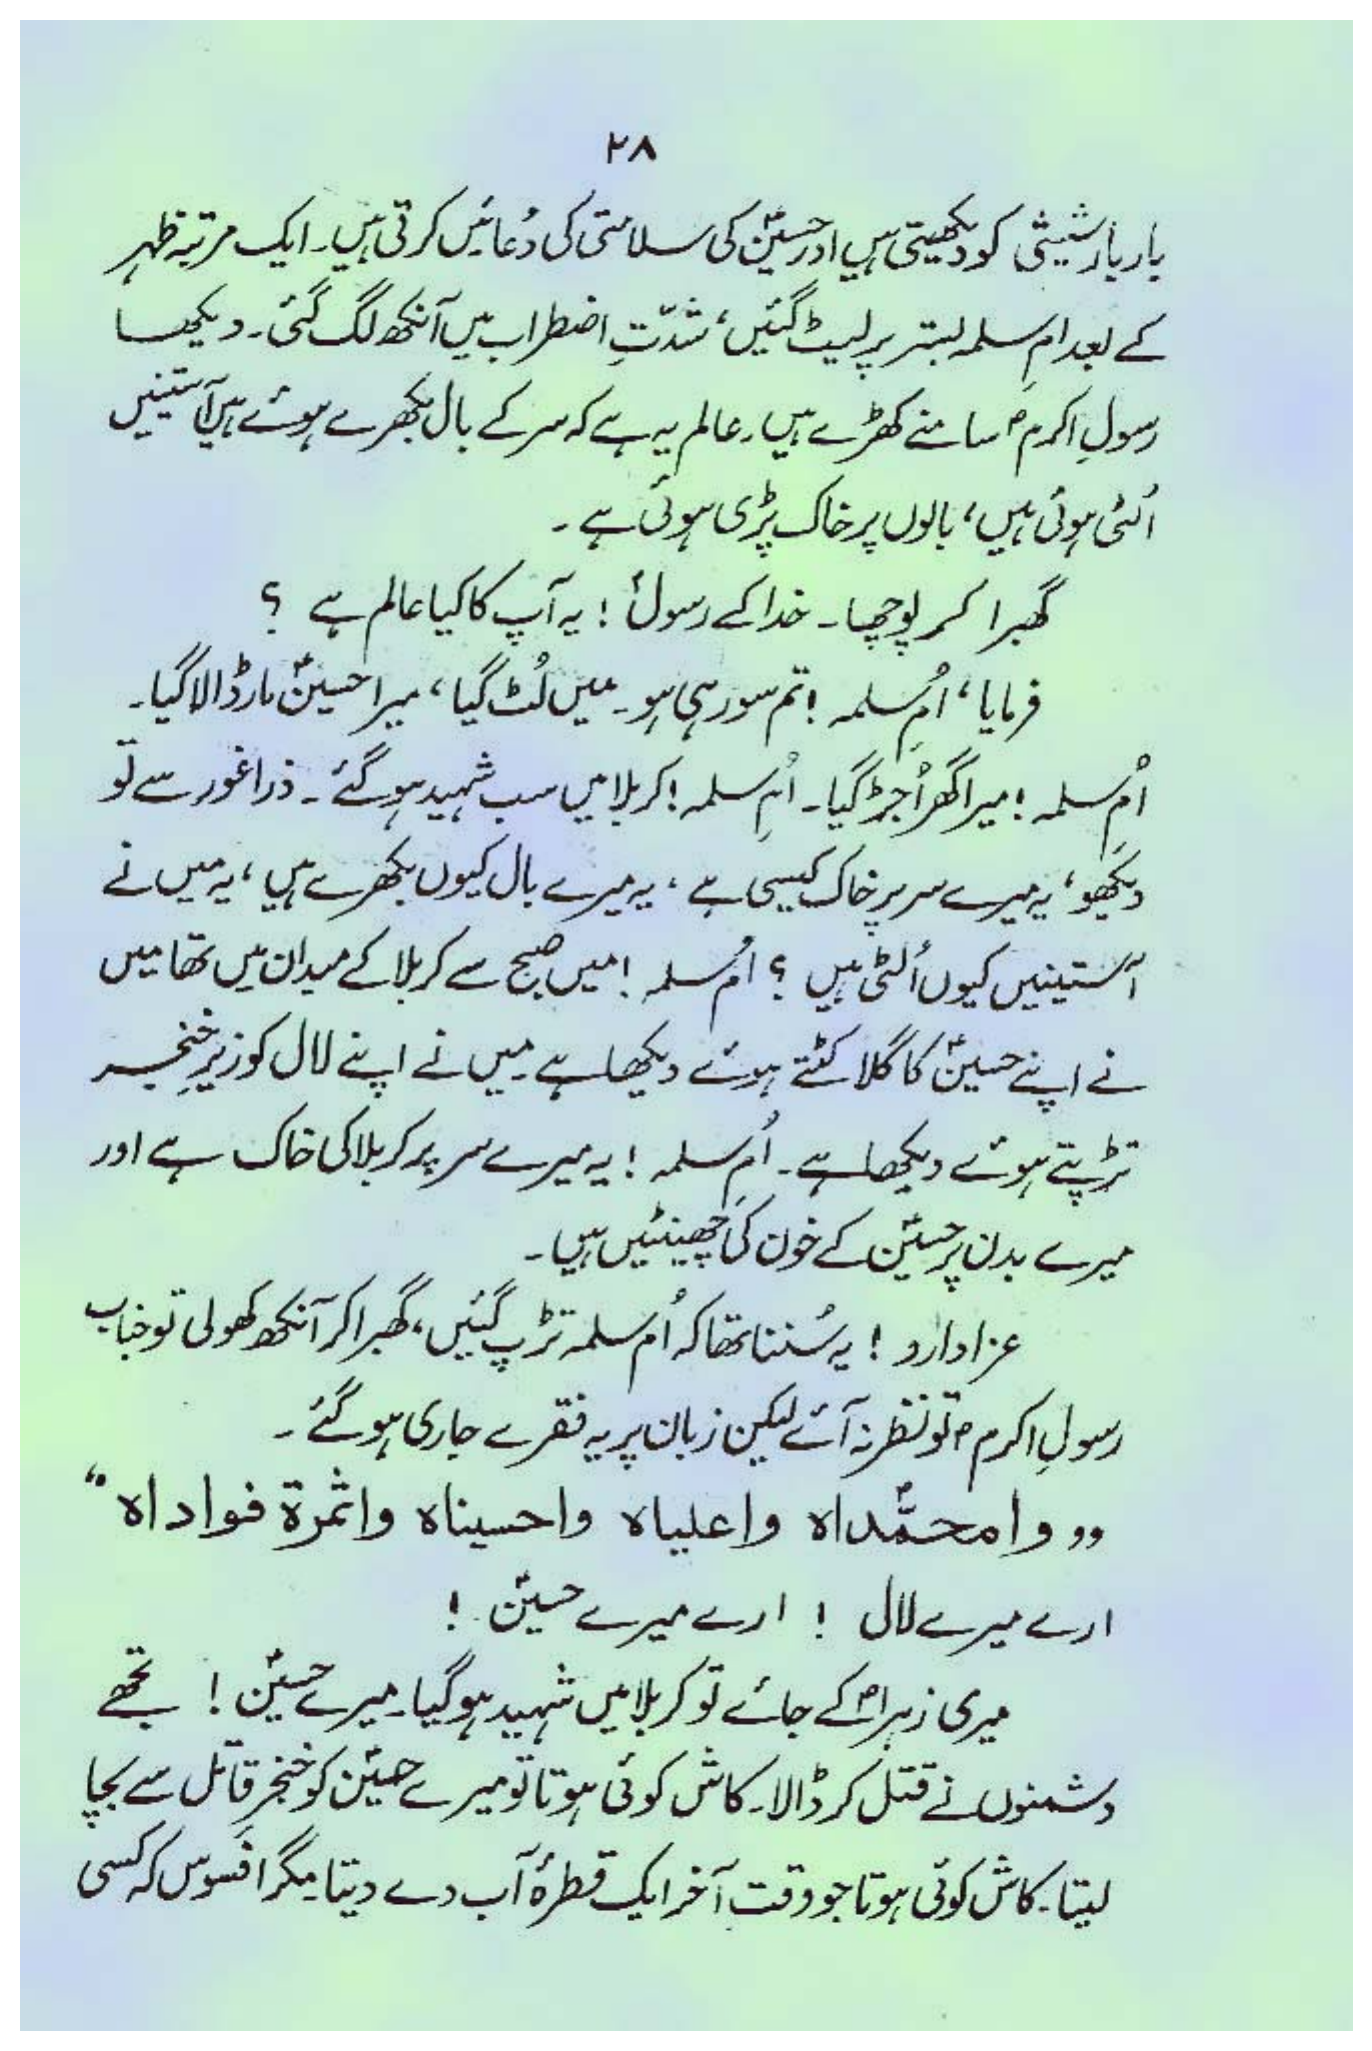 ۲۸
بار بار شیشی کو دیکھتی ہیں اور حسینؑ کی سلامتی کی دُعائیں کرتی ہیں۔ ایک مرتبہ ظہر
کے بعد امِ سلمہ بستر پر لیٹ گئیں، شدّتِ اضطراب میں آنکھ لگ گئی۔ دیکھا
رسولِ اکرمؐ سامنے کھڑے ہیں۔ عالم یہ ہے کہ سر کے بال بکھرے ہوئے ہیں آستینیں
اُلٹی ہوئی ہیں، بالوں پر خاک پڑی ہوئی ہے۔
گھبرا کر پوچھا۔ خدا کے رسولؐ ! یہ آپ کا کیا عالم ہے ؟
فرمایا، اُمِ سلمہ ! تم سو رہی ہو۔ میں لُٹ گیا، میرا حسینؑ مار ڈالا گیا۔
اُمِ سلمہ ! میرا گھر اُجڑ گیا۔ اُمِ سلمہ ! کربلا میں سب شہید ہو گئے۔ ذرا غور سے تو
دیکھو، یہ میرے سر پر خاک کیسی ہے، یہ میرے بال کیوں بکھرے ہیں، یہ میں نے
آستینیں کیوں اُلٹی ہیں ؟ اُم سلمہ ! میں صبح سے کربلا کے میدان میں تھا میں
نے اپنے حسینؑ کا گلا کٹتے ہوئے دیکھا ہے میں نے اپنے لال کو زیرِ خنجر
تڑپتے ہوئے دیکھا ہے۔ اُمِ سلمہ ! یہ میرے سر پر کربلا کی خاک ہے اور
میرے بدن پر حسینؑ کے خون کی چھینٹیں ہیں۔
عزادارو ! یہ سُننا تھا کہ اُم سلمہ تڑپ گئیں، گھبرا کر آنکھ کھولی تو جناب
رسولِ اکرمؐ تو نظر نہ آئے لیکن زبان پر یہ فقرے جاری ہو گئے۔
”وامحمّداہ واعلیاہ واحسیناہ واثمرۃ فواداہ“
ارے میرے لال ! ارے میرے حسینؑ !
میری زہراؑ کے جائے تو کربلا میں شہید ہو گیا۔ میرے حسینؑ ! تجھے
دشمنوں نے قتل کر ڈالا۔ کاش کوئی ہوتا تو میرے حسینؑ کو خنجرِ قاتل سے بچا
لیتا۔ کاش کوئی ہوتا جو وقت آخر ایک قطرۂ آب دے دیتا۔ مگر افسوس کہ کسی